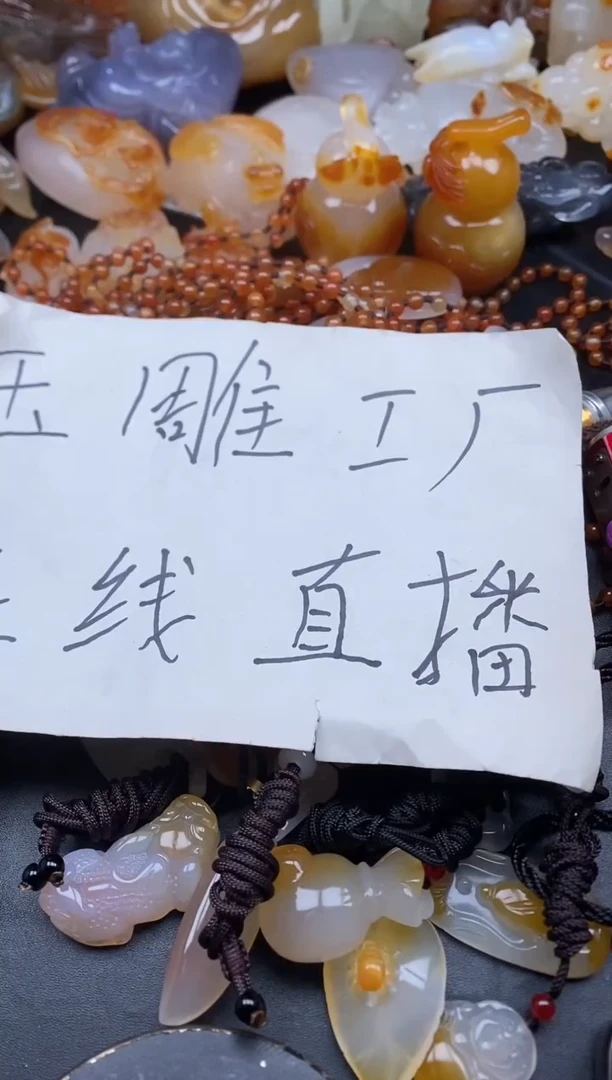 玉雕工厂
线直播